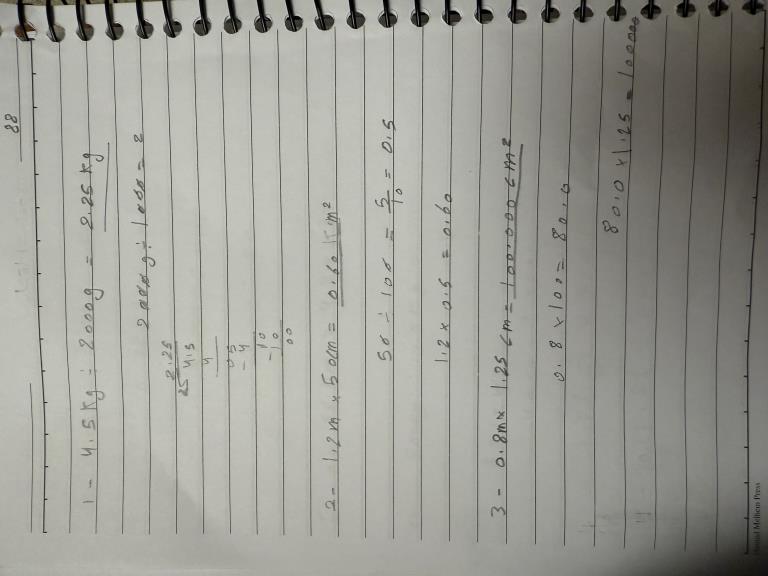 88
1 - 4.5 Kg ÷ 2000g = 2.25 Kg
2000 g ÷ 1000 = 2
2.25
4.5
4
05
- 4
10
- 10
00
2 - 1.2m × 50cm = 0.60 m²
50 ÷ 100 = 5/10 = 0.5
1.2 × 0.5 = 0.60
3 - 0.8m × 1.25 cm = 100.000 cm²
0.8 × 100 = 80.0
80.0 × 1.25 = 100000